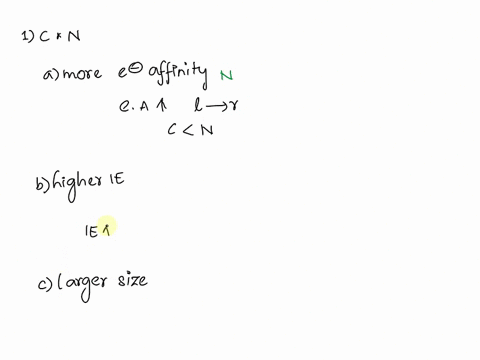 1) C * N
a) more e⊖ affinity N
e.A ↑ l → r
C < N
b) higher IE
IE ↑
c) larger size